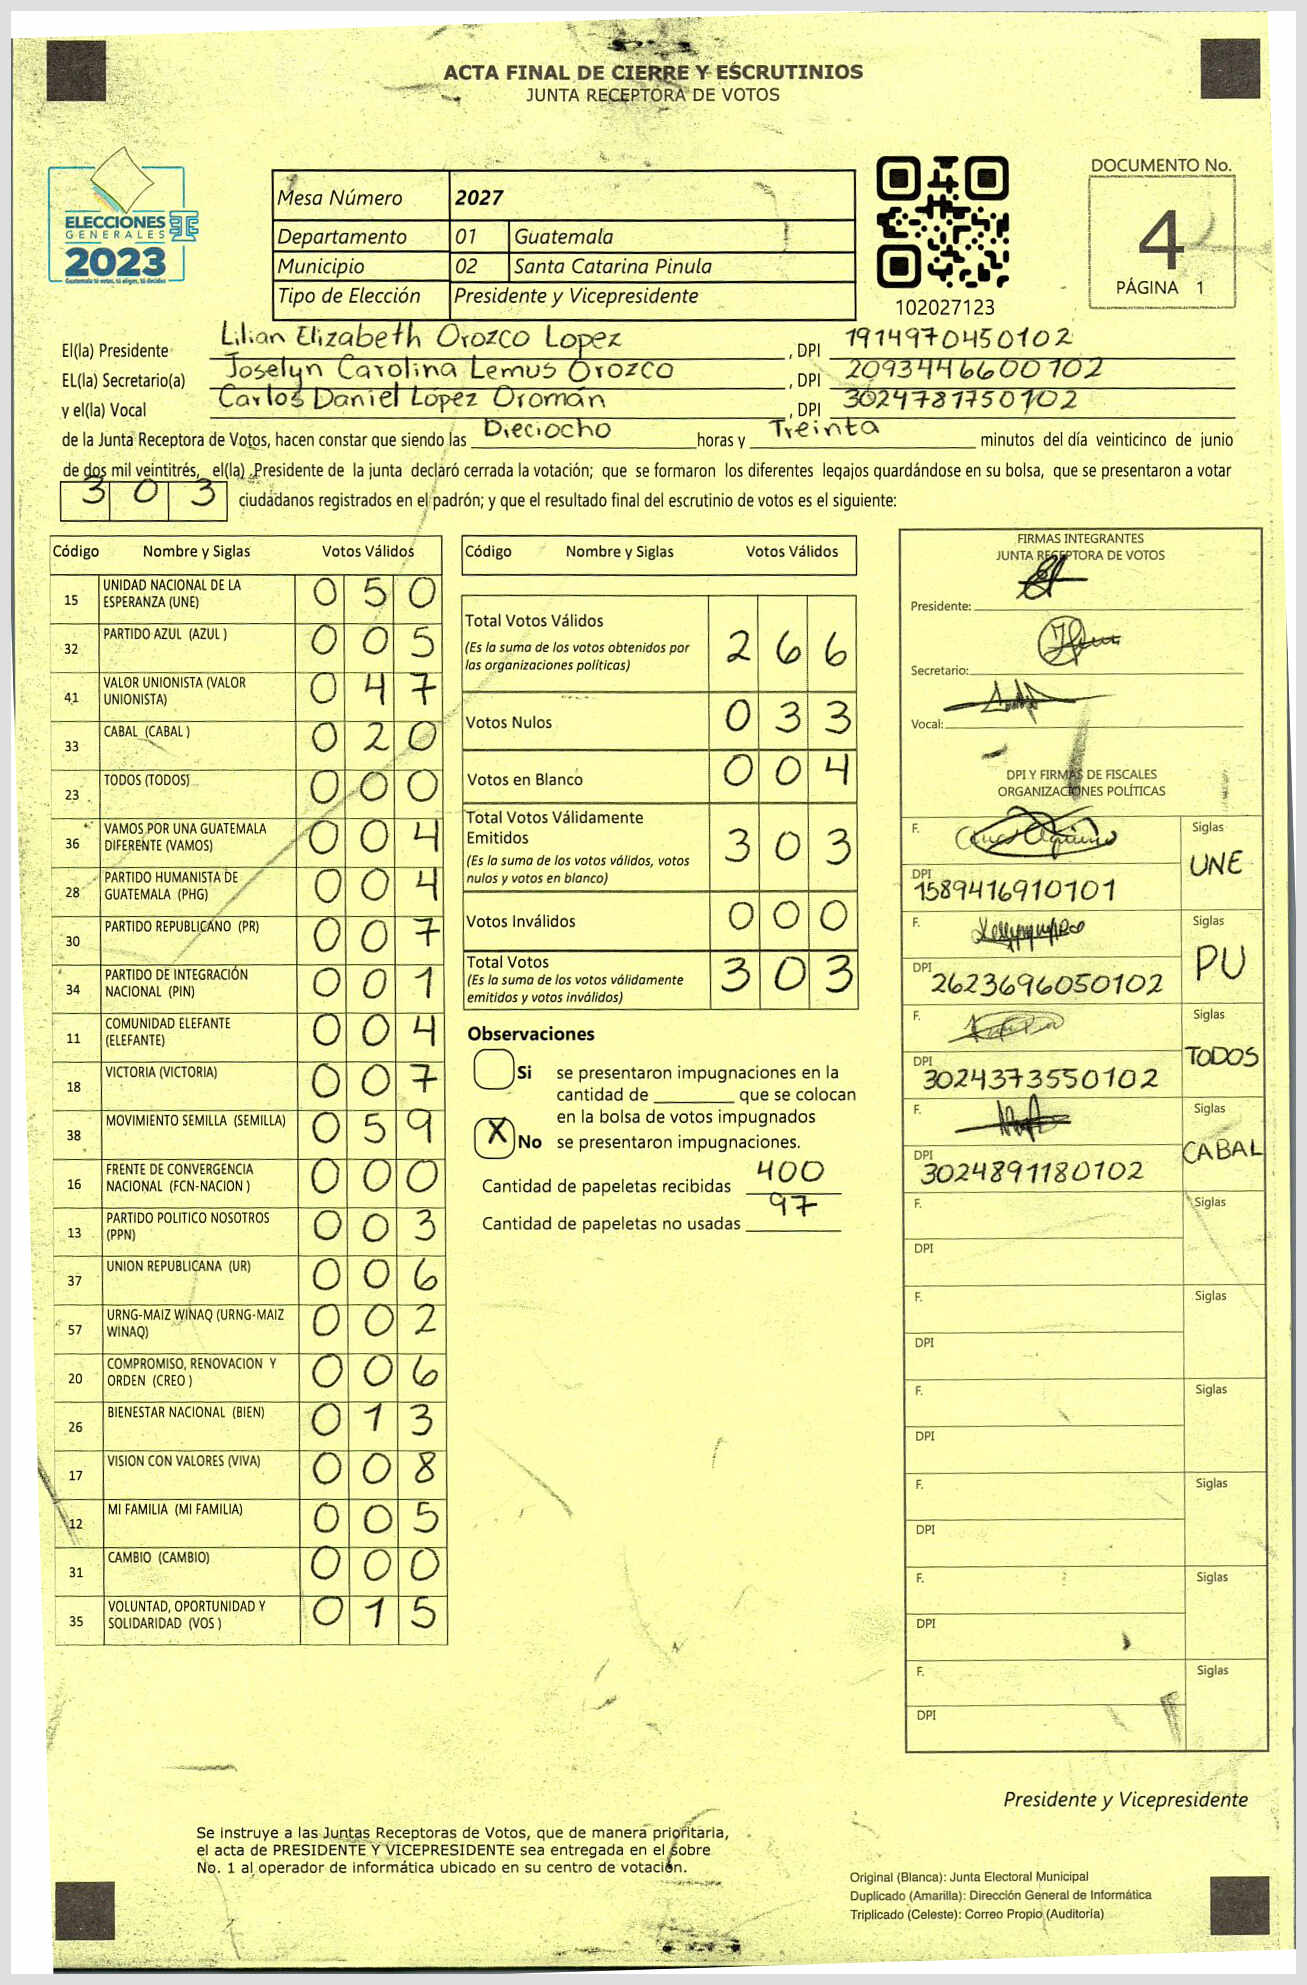 ACTA FINAL DE CIERRE Y ESCRUTINIOS
JUNTA RECEPTORA DE VOTOS
ELECCIONES
GENERALES
2023
Guatemala tú votas, tú eliges, tú decides
Mesa Número 2027
Departamento 01 Guatemala
Municipio 02 Santa Catarina Pinula
Tipo de Elección Presidente y Vicepresidente
102027123
DOCUMENTO No.
4
PÁGINA 1
El(la) Presidente Lilian Elizabeth Orozco Lopez , DPI 1914970450102
EL(la) Secretario(a) Joselyn Carolina Lemus Orozco , DPI 2093446600102
y el(la) Vocal Carlos Daniel López Oromán , DPI 3024781750102
de la Junta Receptora de Votos, hacen constar que siendo las Dieciocho horas y Treinta minutos del día veinticinco de junio
de dos mil veintitrés, el(la) Presidente de la junta declaró cerrada la votación; que se formaron los diferentes legajos guardándose en su bolsa, que se presentaron a votar
3 0 3 ciudadanos registrados en el padrón; y que el resultado final del escrutinio de votos es el siguiente:
Código Nombre y Siglas Votos Válidos
15 UNIDAD NACIONAL DE LA ESPERANZA (UNE) 0 5 0
32 PARTIDO AZUL (AZUL ) 0 0 5
41 VALOR UNIONISTA (VALOR UNIONISTA) 0 4 7
33 CABAL (CABAL ) 0 2 0
23 TODOS (TODOS) 0 0 0
36 VAMOS POR UNA GUATEMALA DIFERENTE (VAMOS) 0 0 4
28 PARTIDO HUMANISTA DE GUATEMALA (PHG) 0 0 4
30 PARTIDO REPUBLICANO (PR) 0 0 7
34 PARTIDO DE INTEGRACIÓN NACIONAL (PIN) 0 0 1
11 COMUNIDAD ELEFANTE (ELEFANTE) 0 0 4
18 VICTORIA (VICTORIA) 0 0 7
38 MOVIMIENTO SEMILLA (SEMILLA) 0 5 9
16 FRENTE DE CONVERGENCIA NACIONAL (FCN-NACION ) 0 0 0
13 PARTIDO POLITICO NOSOTROS (PPN) 0 0 3
37 UNION REPUBLICANA (UR) 0 0 6
57 URNG-MAIZ WINAQ (URNG-MAIZ WINAQ) 0 0 2
20 COMPROMISO, RENOVACION Y ORDEN (CREO ) 0 0 6
26 BIENESTAR NACIONAL (BIEN) 0 1 3
17 VISION CON VALORES (VIVA) 0 0 8
12 MI FAMILIA (MI FAMILIA) 0 0 5
31 CAMBIO (CAMBIO) 0 0 0
35 VOLUNTAD, OPORTUNIDAD Y SOLIDARIDAD (VOS ) 0 1 5
Código Nombre y Siglas Votos Válidos
Total Votos Válidos 2 6 6
(Es la suma de los votos obtenidos por
las organizaciones políticas)
Votos Nulos 0 3 3
Votos en Blanco 0 0 4
Total Votos Válidamente
Emitidos 3 0 3
(Es la suma de los votos válidos, votos
nulos y votos en blanco)
Votos Inválidos 0 0 0
Total Votos 3 0 3
(Es la suma de los votos válidamente
emitidos y votos inválidos)
Observaciones
Si se presentaron impugnaciones en la
cantidad de ________ que se colocan
en la bolsa de votos impugnados
X No se presentaron impugnaciones.
Cantidad de papeletas recibidas 400
Cantidad de papeletas no usadas 97
FIRMAS INTEGRANTES
JUNTA RECEPTORA DE VOTOS
Presidente:
Secretario:
Vocal:
DPI Y FIRMAS DE FISCALES
ORGANIZACIONES POLÍTICAS
F. Siglas
DPI 1589416910101 UNE
F. Siglas
DPI 2623696050102 PU
F. Siglas
DPI 3024373550102 TODOS
F. Siglas
DPI 3024891180102 CABAL
F. Siglas
DPI
F. Siglas
DPI
F. Siglas
DPI
F. Siglas
DPI
F. Siglas
DPI
F. Siglas
DPI
Presidente y Vicepresidente
Se instruye a las Juntas Receptoras de Votos, que de manera prioritaria,
el acta de PRESIDENTE Y VICEPRESIDENTE sea entregada en el sobre
No. 1 al operador de informática ubicado en su centro de votación.
Original (Blanca): Junta Electoral Municipal
Duplicado (Amarilla): Dirección General de Informática
Triplicado (Celeste): Correo Propio (Auditoría)